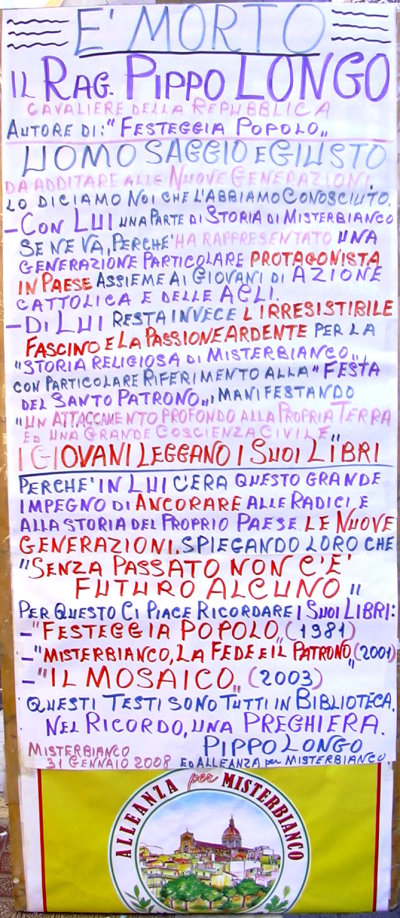 E' MORTO
IL RAG. PIPPO LONGO
CAVALIERE DELLA REPUBBLICA
AUTORE DI: "FESTEGGIA POPOLO,,
UOMO SAGGIO E GIUSTO
DA ADDITARE ALLE NUOVE GENERAZIONI.
LO DICIAMO NOI CHE L'ABBIAMO CONOSCIUTO.
- CON LUI UNA PARTE DI STORIA DI MISTERBIANCO
SE NE VA, PERCHE' HA RAPPRESENTATO UNA
GENERAZIONE PARTICOLARE PROTAGONISTA
IN PAESE ASSIEME AI GIOVANI DI AZIONE
CATTOLICA E DELLE ACLI.
- DI LUI RESTA INVECE L'IRRESISTIBILE
FASCINO E LA PASSIONE ARDENTE PER LA
"STORIA RELIGIOSA DI MISTERBIANCO,,
CON PARTICOLARE RIFERIMENTO ALLA "FESTA
DEL SANTO PATRONO,, MANIFESTANDO
"UN ATTACCAMENTO PROFONDO ALLA PROPRIA TERRA
ED UNA GRANDE COSCIENZA CIVILE,,
I GIOVANI LEGGANO I SUOI LIBRI
PERCHE' IN LUI C'ERA QUESTO GRANDE
IMPEGNO DI ANCORARE ALLE RADICI E
ALLA STORIA DEL PROPRIO PAESE LE NUOVE
GENERAZIONI. SPIEGANDO LORO CHE
"SENZA PASSATO NON C'E'
FUTURO ALCUNO,,
PER QUESTO CI PIACE RICORDARE I SUOI LIBRI:
- "FESTEGGIA POPOLO,, (1981)
- "MISTERBIANCO, LA FEDE E IL PATRONO,, (2001)
- "IL MOSAICO,, (2003)
QUESTI TESTI SONO TUTTI IN BIBLIOTECA.
NEL RICORDO, UNA PREGHIERA.
PIPPO LONGO
MISTERBIANCO
31 GENNAIO 2008 ED ALLEANZA per MISTERBIANCO.
ALLEANZA per MISTERBIANCO